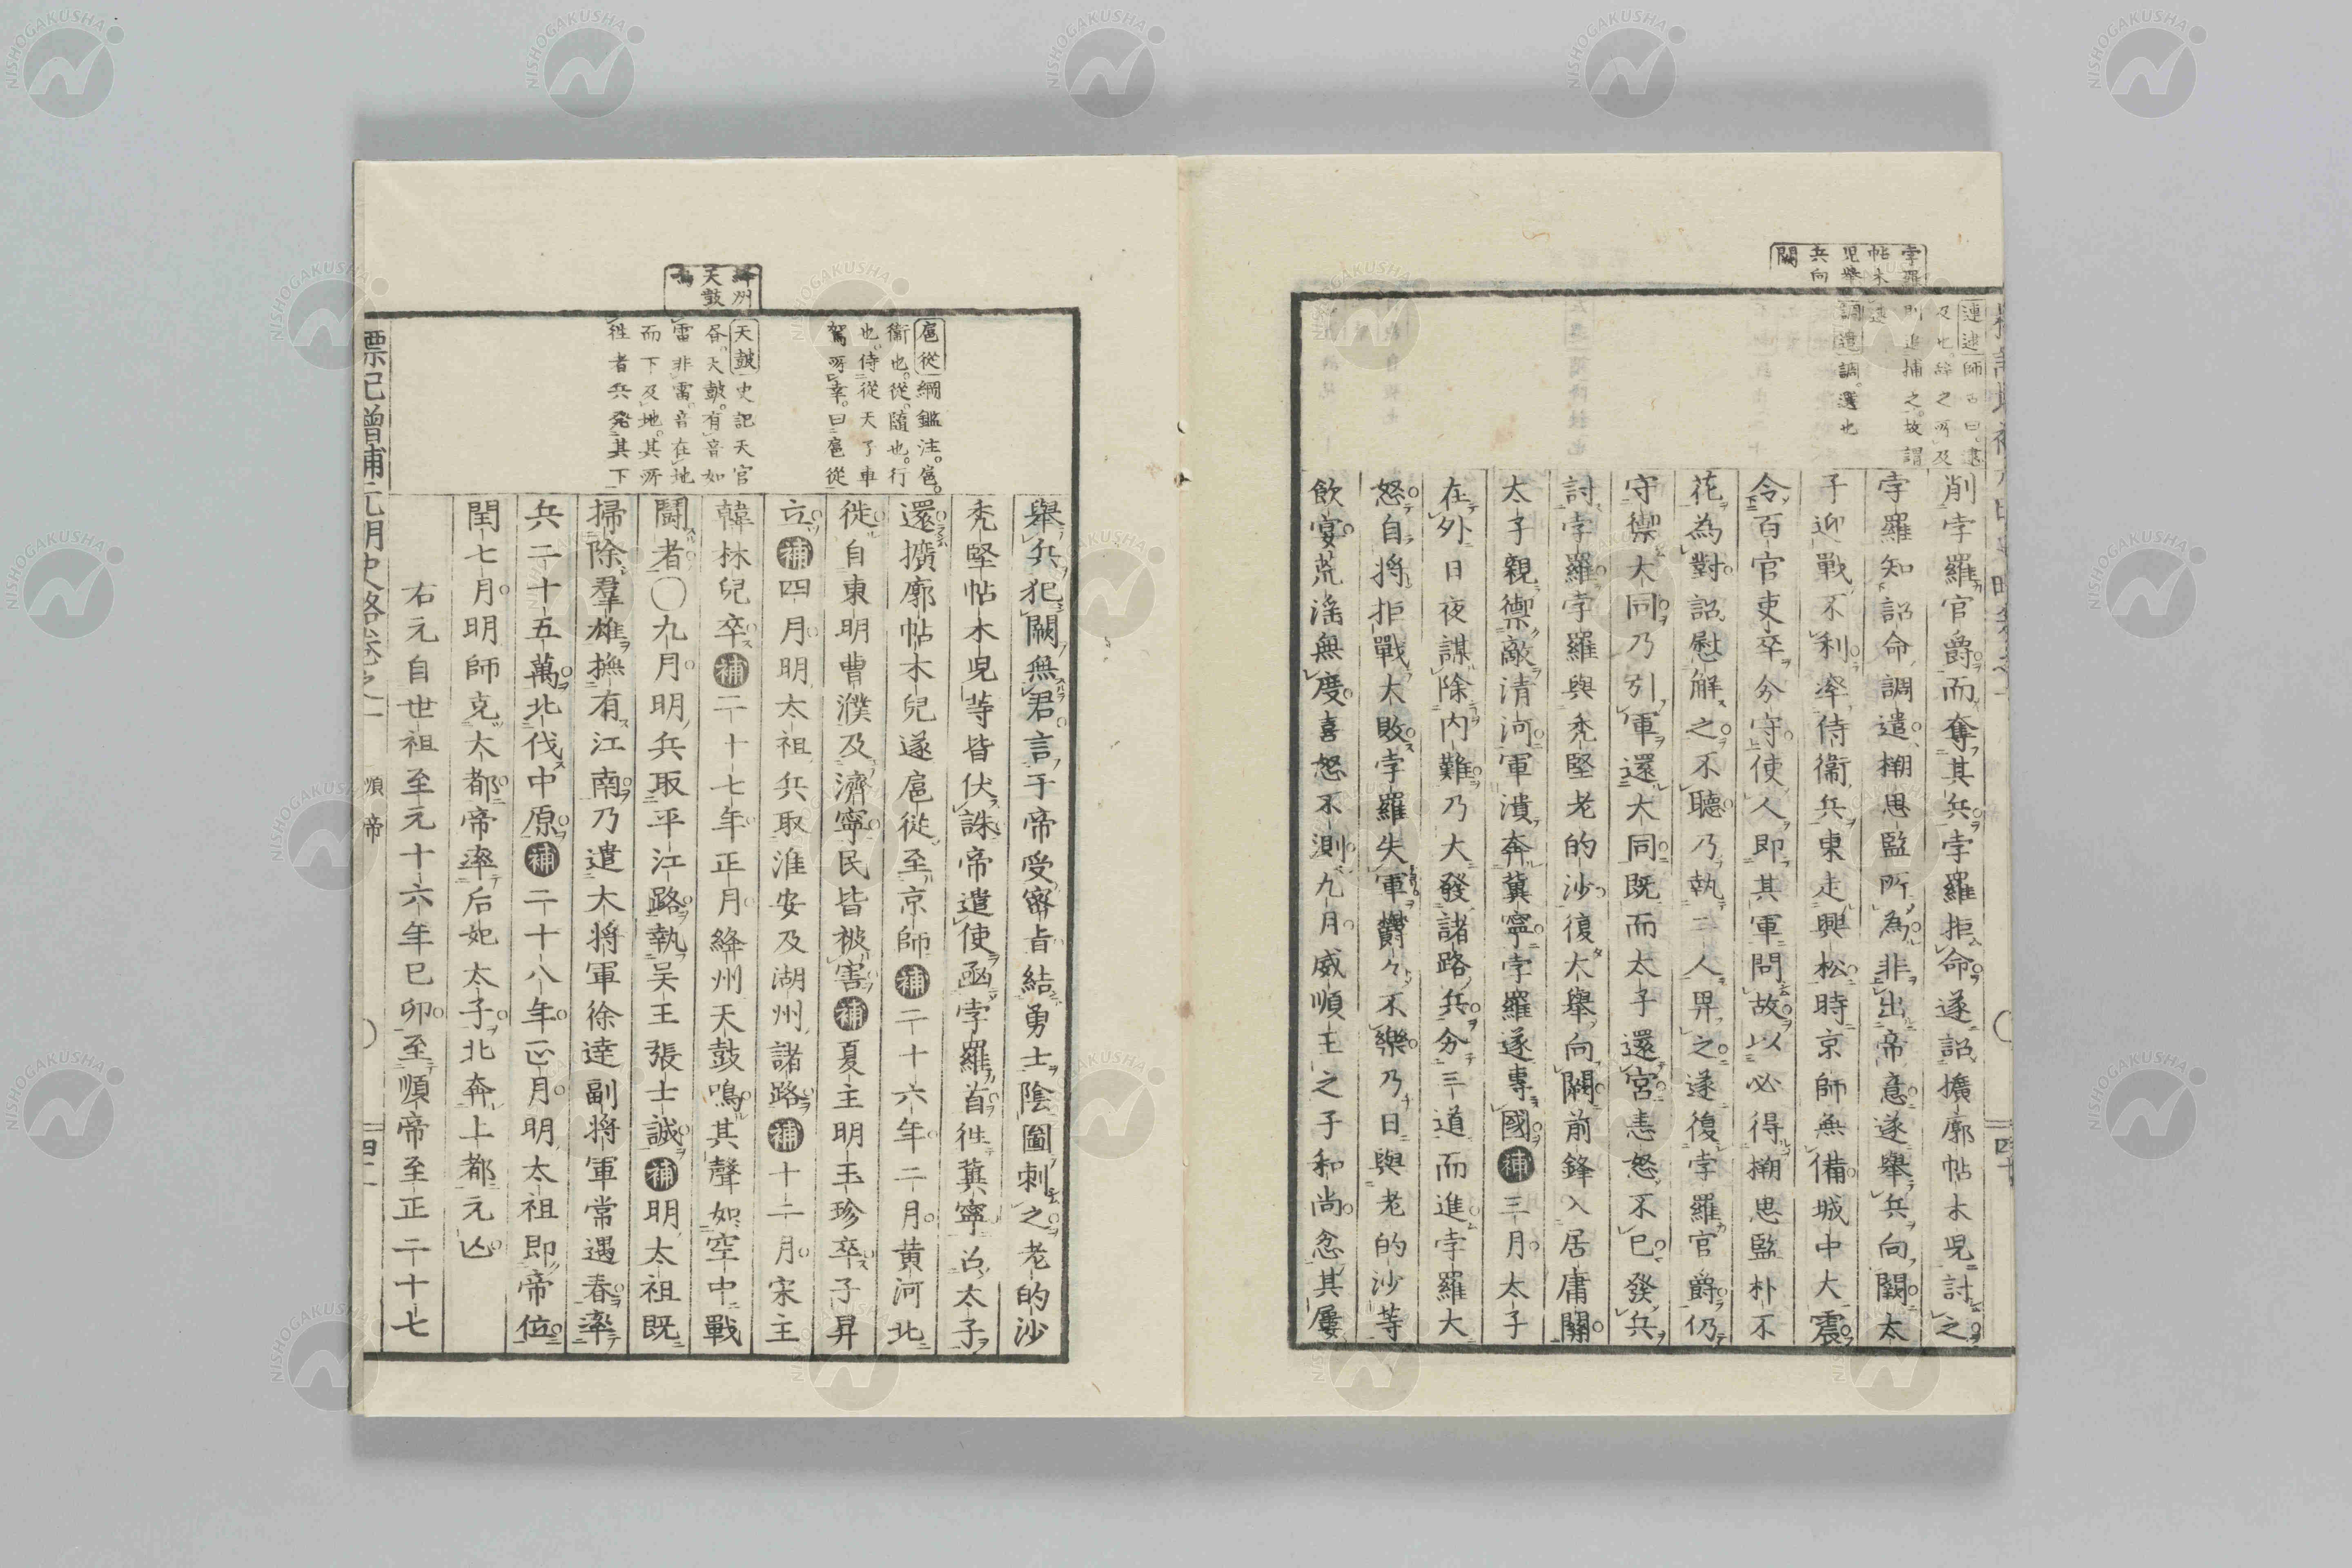 孛羅
帖木
児舉
兵向
闕
連逮
則追捕之故謂
調遣調選也
削孛羅官爵而奪其兵孛羅拒命遂詔擴廓帖木児討之
孛羅知詔命調遣搠思監所為非出帝意遂舉兵向闕太
子迎戰不利率侍衛兵東走興松時京師無備城中大震
令百官吏卒分守使人即其軍問故以必得搠思監朴不
花為對詔慰解之不聽乃執二人畀之遂復孛羅官爵仍
守禦大同乃引軍還大同既而太子還宮恚怒不已發兵
討孛羅孛羅與禿堅老的沙復大舉向闕前鋒入居庸關
太子親禦敵清河軍潰奔冀寧孛羅遂專國補三月太子
在外日夜謀除內難乃大發諸路兵分三道而進孛羅大
怒自將拒戰大敗孛羅失軍欝々不樂乃日與老的沙等
飲宴荒淫無度喜怒不測九月威順王之子和尚忿其屢
絳州
天鼓
鳴
扈從綱鑑注扈
衛也從隨也行
也侍從天子車
駕所幸曰扈從
天鼓史記天官
昏天鼓有音如
雷非雷音在地
而下及地其所
徃者兵発其下
舉兵犯闕無君言于帝受密旨結勇士陰圖刺之老的沙
禿堅帖木児等皆伏誅帝遣使函孛羅首徃冀寧召太子
還擴廓帖木兒遂扈從至京師補二十六年二月黄河北
徙自東明曹濮及濟寧民皆被害補夏主明玉珍卒子昇
立補四月明太祖兵取淮安及湖州諸路補十二月宋主
韓林兒卒補二十七年正月絳州天鼓鳴其聲如空中戰
鬪者〇九月明兵取平江路執吴王張士誠補明太祖既
掃除羣雄撫有江南乃遣大將軍徐達副將軍常遇春率
兵二十五萬北伐中原補二十八年正月明太祖即帝位
閏七月明師克大都帝率后妃太子北奔上都元亾
右元自世祖至元十六年已卯至順帝至正二十七
標記增補元明史略卷之一　順帝　四十一